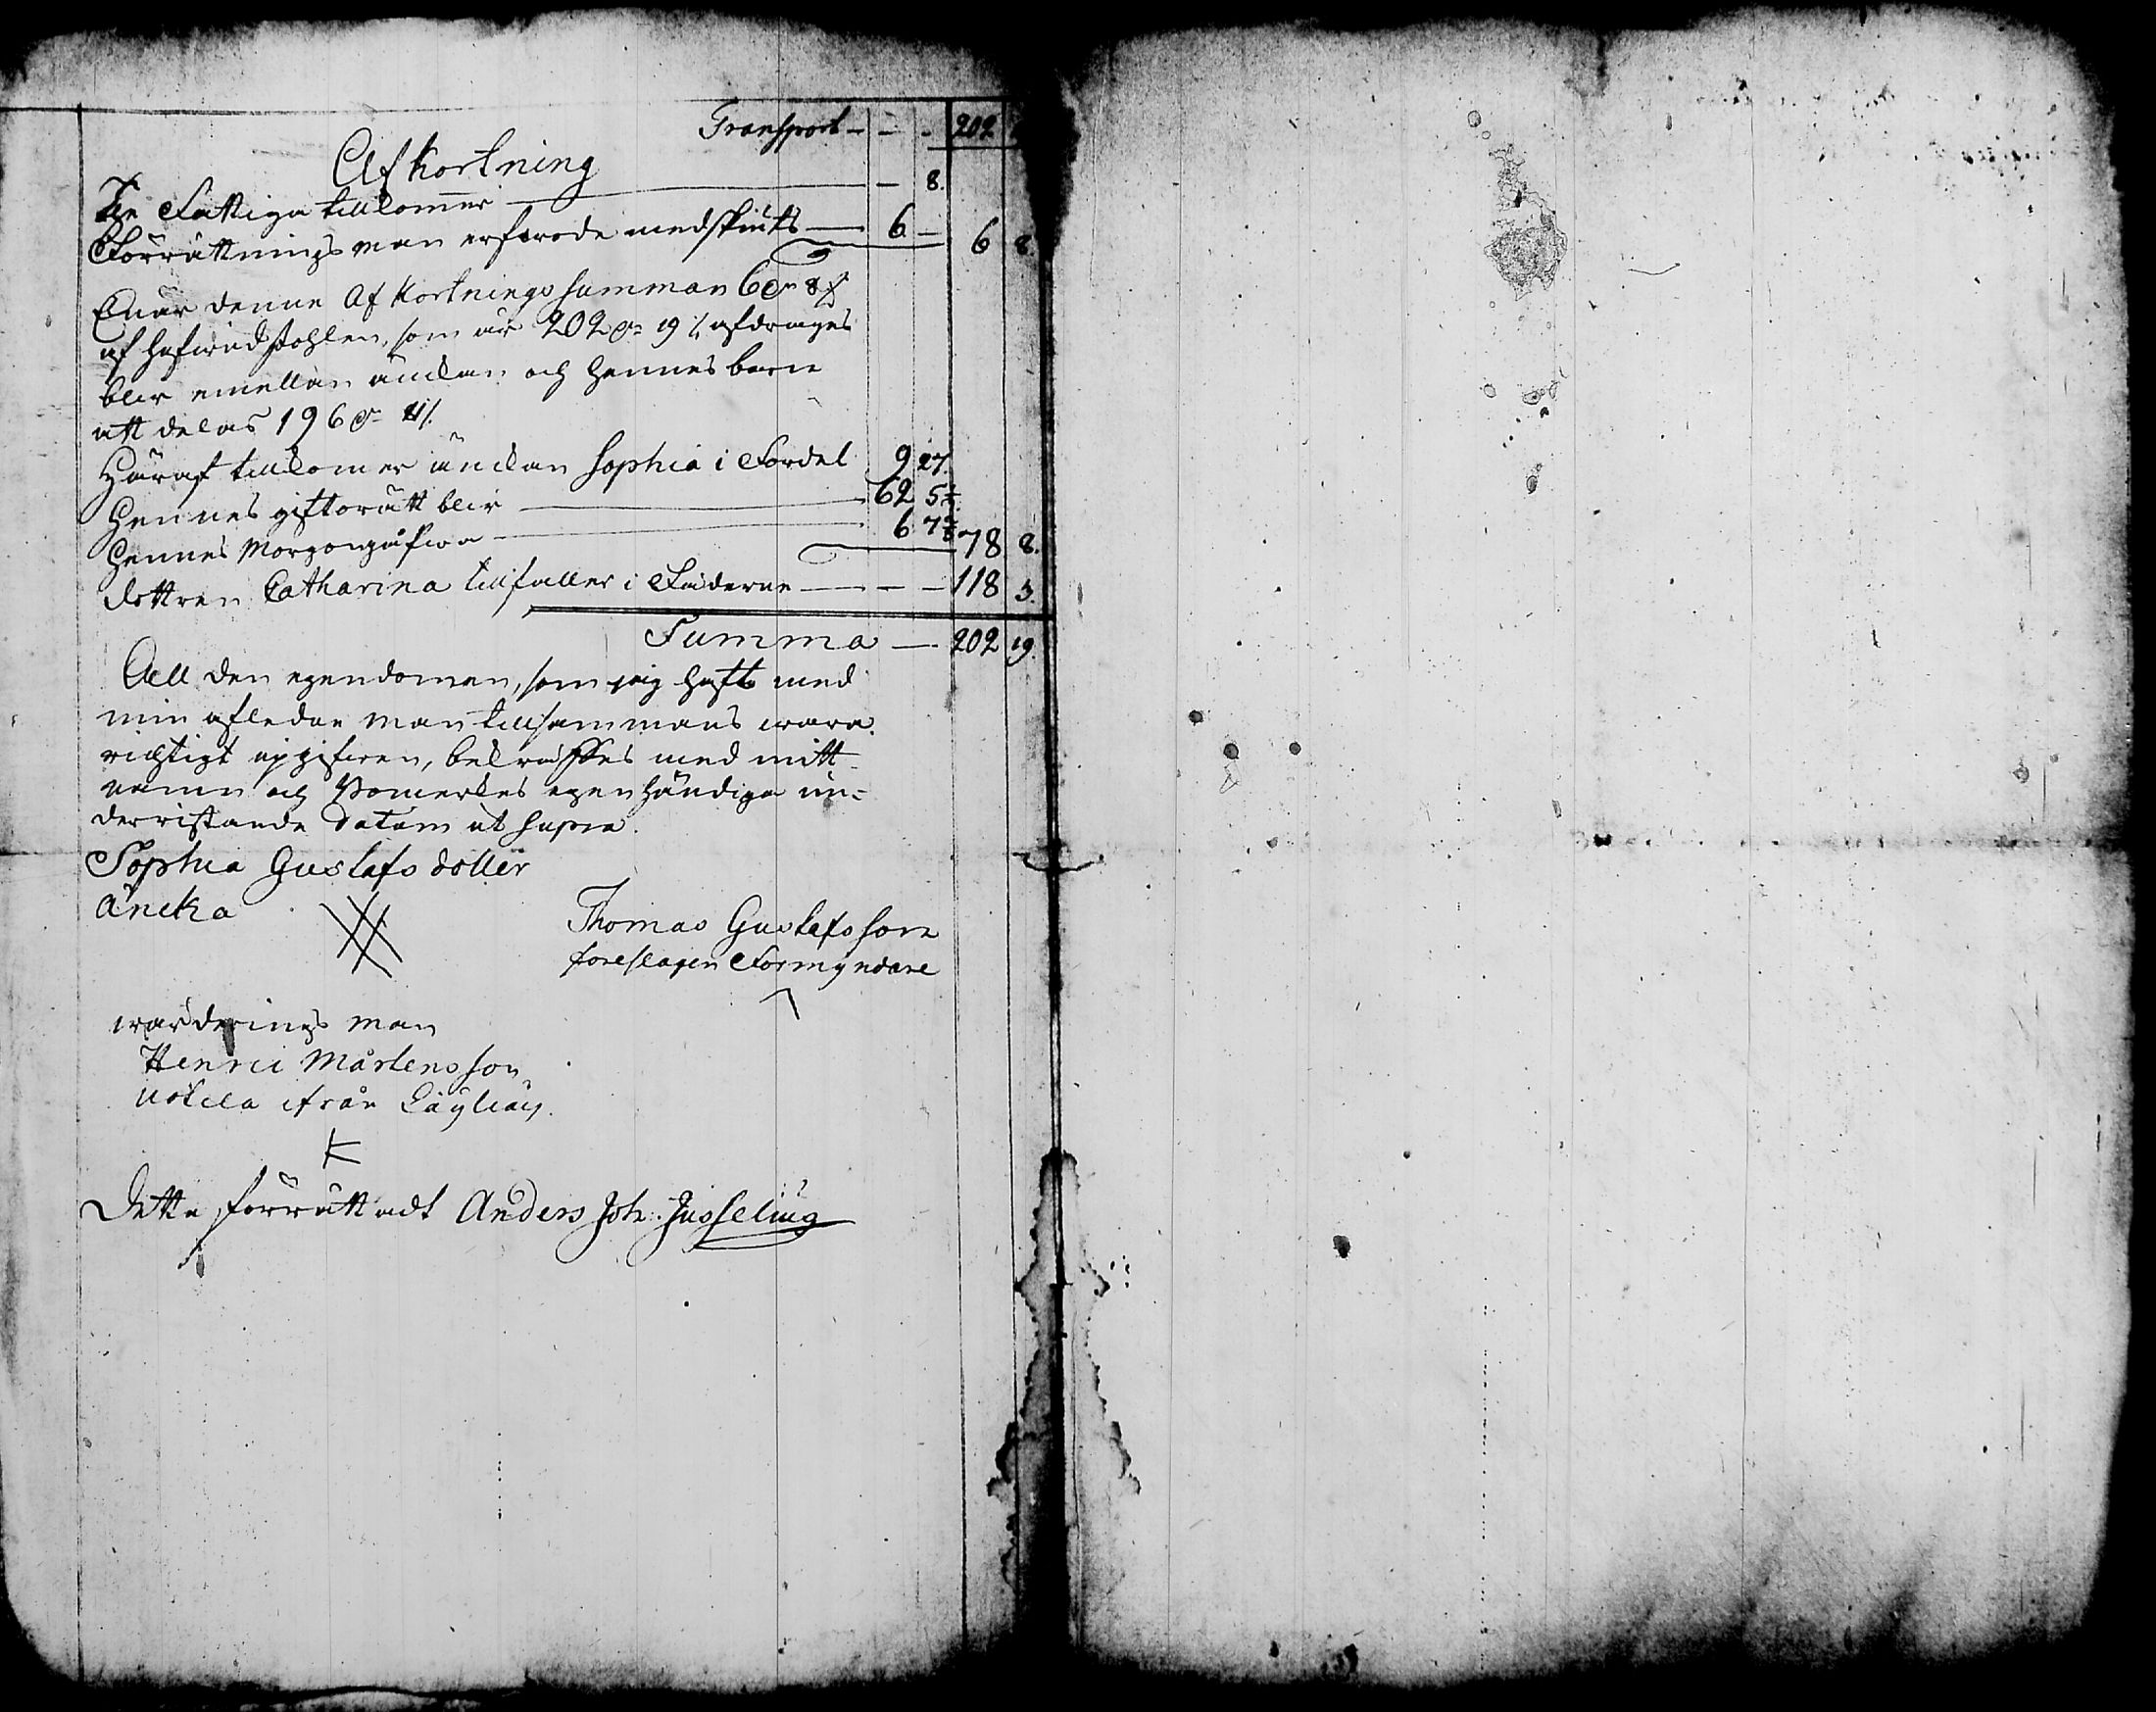 Transport — — — 202
Afkortning
De Fattiga tillkommer — — 8.
Förrättnings man erfarade medspints — 6. — 6 8.
Enär denne Afkortnings summan 6 8
af hufwudstohlen, som är 202 19 afdrages
blir emellan änckan och hennes barn
att delas 196 11
Häraf tillkommer änckan Sophia i Fördel 9 27.
Hennes giftorätt blir — 62 5½
Hennes Morgongåfwa — 6 7½ 78 8.
dottren Catharina tillfaller i Fäderne — — — 118 3.
Summa — 202 19.
All den egendomen, som jag haft med
min afledne man tillsammans wara
richtigt upgifwen, bekräfftes med mitt
namn och Bomerkes egenhändiga un-
derristande Datum ut supra.
Sophia Gustafs dotter
äncka
Thomas Gustafsson
föreslagen Förmyndare
wärderings man
Henric Mårtensson
Uotila ifrån
Dette förrättadt Anders Joh.